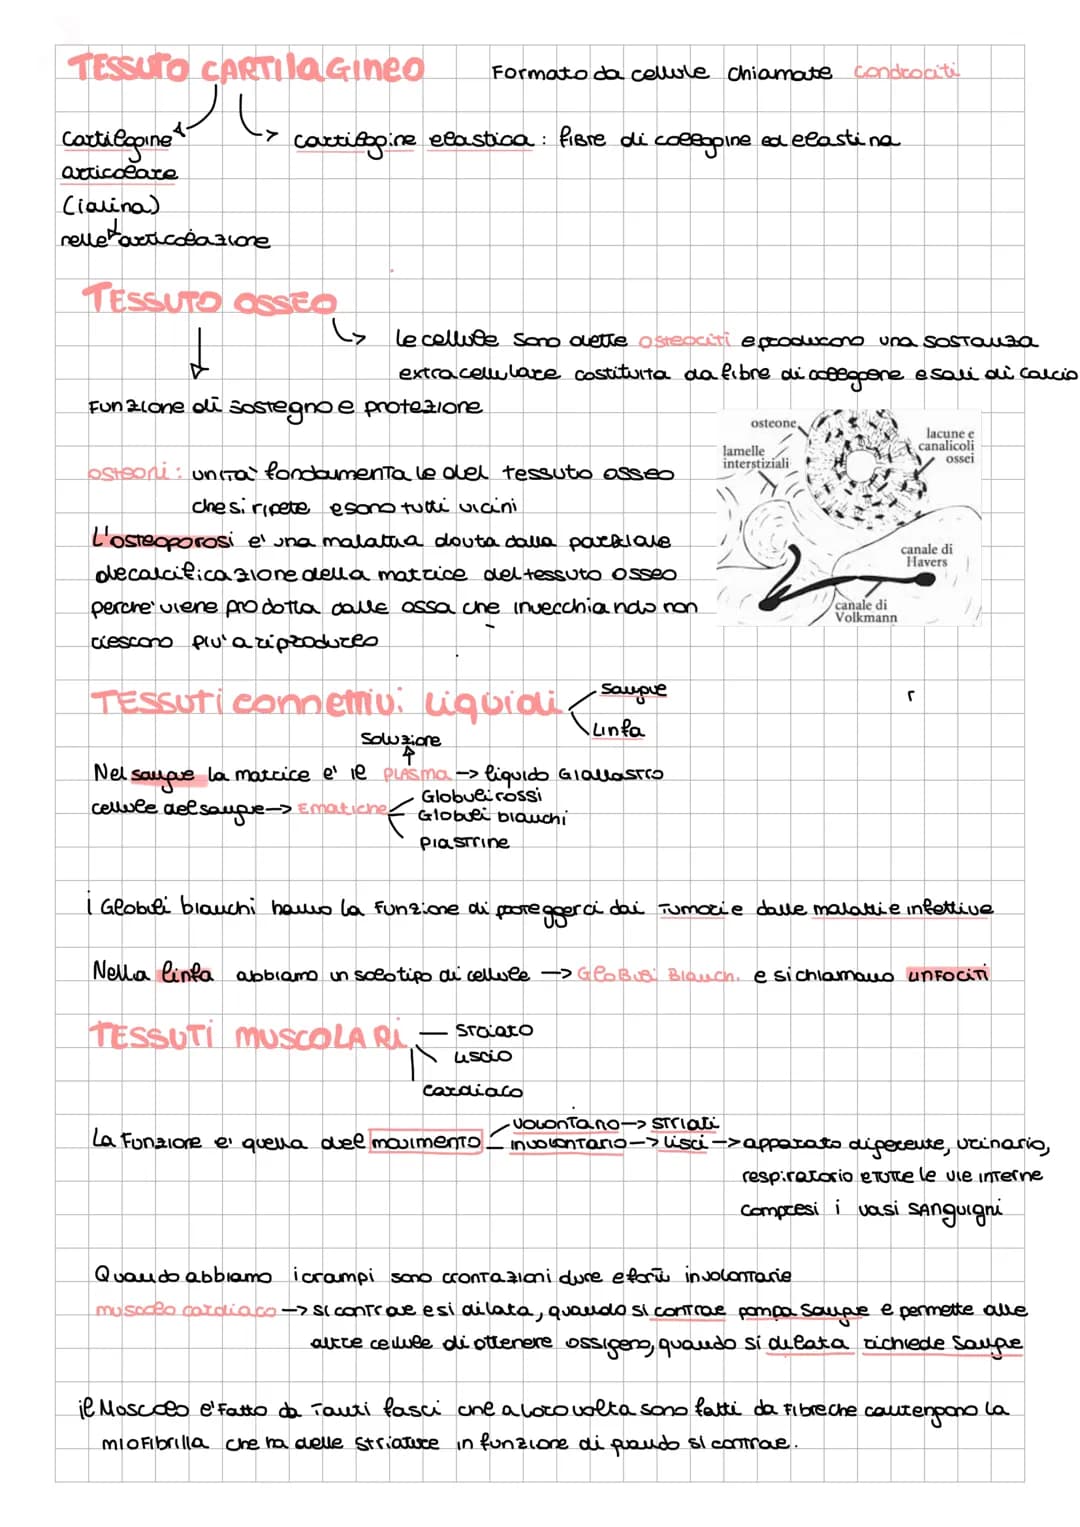 TESSUTO CARTILAGINEO Formato da cellule chiamate condrociti
cartilagine
articolare
(ialina)
nelle articolazione
cartilagine elastica: fibre di collagine ed elastina
TESSUTO OSSEO
le cellule sono dette osteociti e producono una sostanza
extracellulare costituita da fibre di collegene e sali di calcio
Funzione di sostegno e protezione
osteoni: unità fondamentale del tessuto osseo
che si ripete e sono tutti vicini
L'osteoporosi e' una malattia douta dalla parziale
decalcificazione della matrice del tessuto osseo
perche' viene prodotta dalle ossa che invecchiando non
riescono piu' a riprodurlo
osteone
lamelle
interstiziali
lacune e
canalicoli
ossei
canale di
Havers
canale di
Volkmann
TESSUTI connettivi Liquidi
sangue
Linfa
Soluzione
Nel sangue la matrice e' il plasma -> liquido Giallastro
cellule del sangue -> Ematiche
Globuli rossi
Globuli bianchi
Piastrine
i Globuli bianchi hanno la funzione di proteggerci dai Tumori e dalle malattie infettive
Nella linfa abbiamo un solo tipo di cellule -> Globuli Bianchi e si chiamano LINFOCITI
TESSUTI MUSCOLARI
Striato
Liscio
Cardiaco
La Funzione e' quella del movimento
volontario -> striati
involontario -> lisci -> apparato digerente, urinario,
respiratorio e tutte le vie interne
compresi i vasi sanguigni
Quando abbiamo i crampi sono crontazioni dure e forti involontarie
muscolo cardiaco -> si contrae e si dilata, quando si contrae pompa sangue e permette alle
altre cellule di ottenere ossigeno, quando si dilata richiede sangue
il Moscolo e' fatto da tanti fasci che a loro volta sono fatti da fibre che contengono la
mioFibrilla che ha delle striature in funzione di quando si contrae.